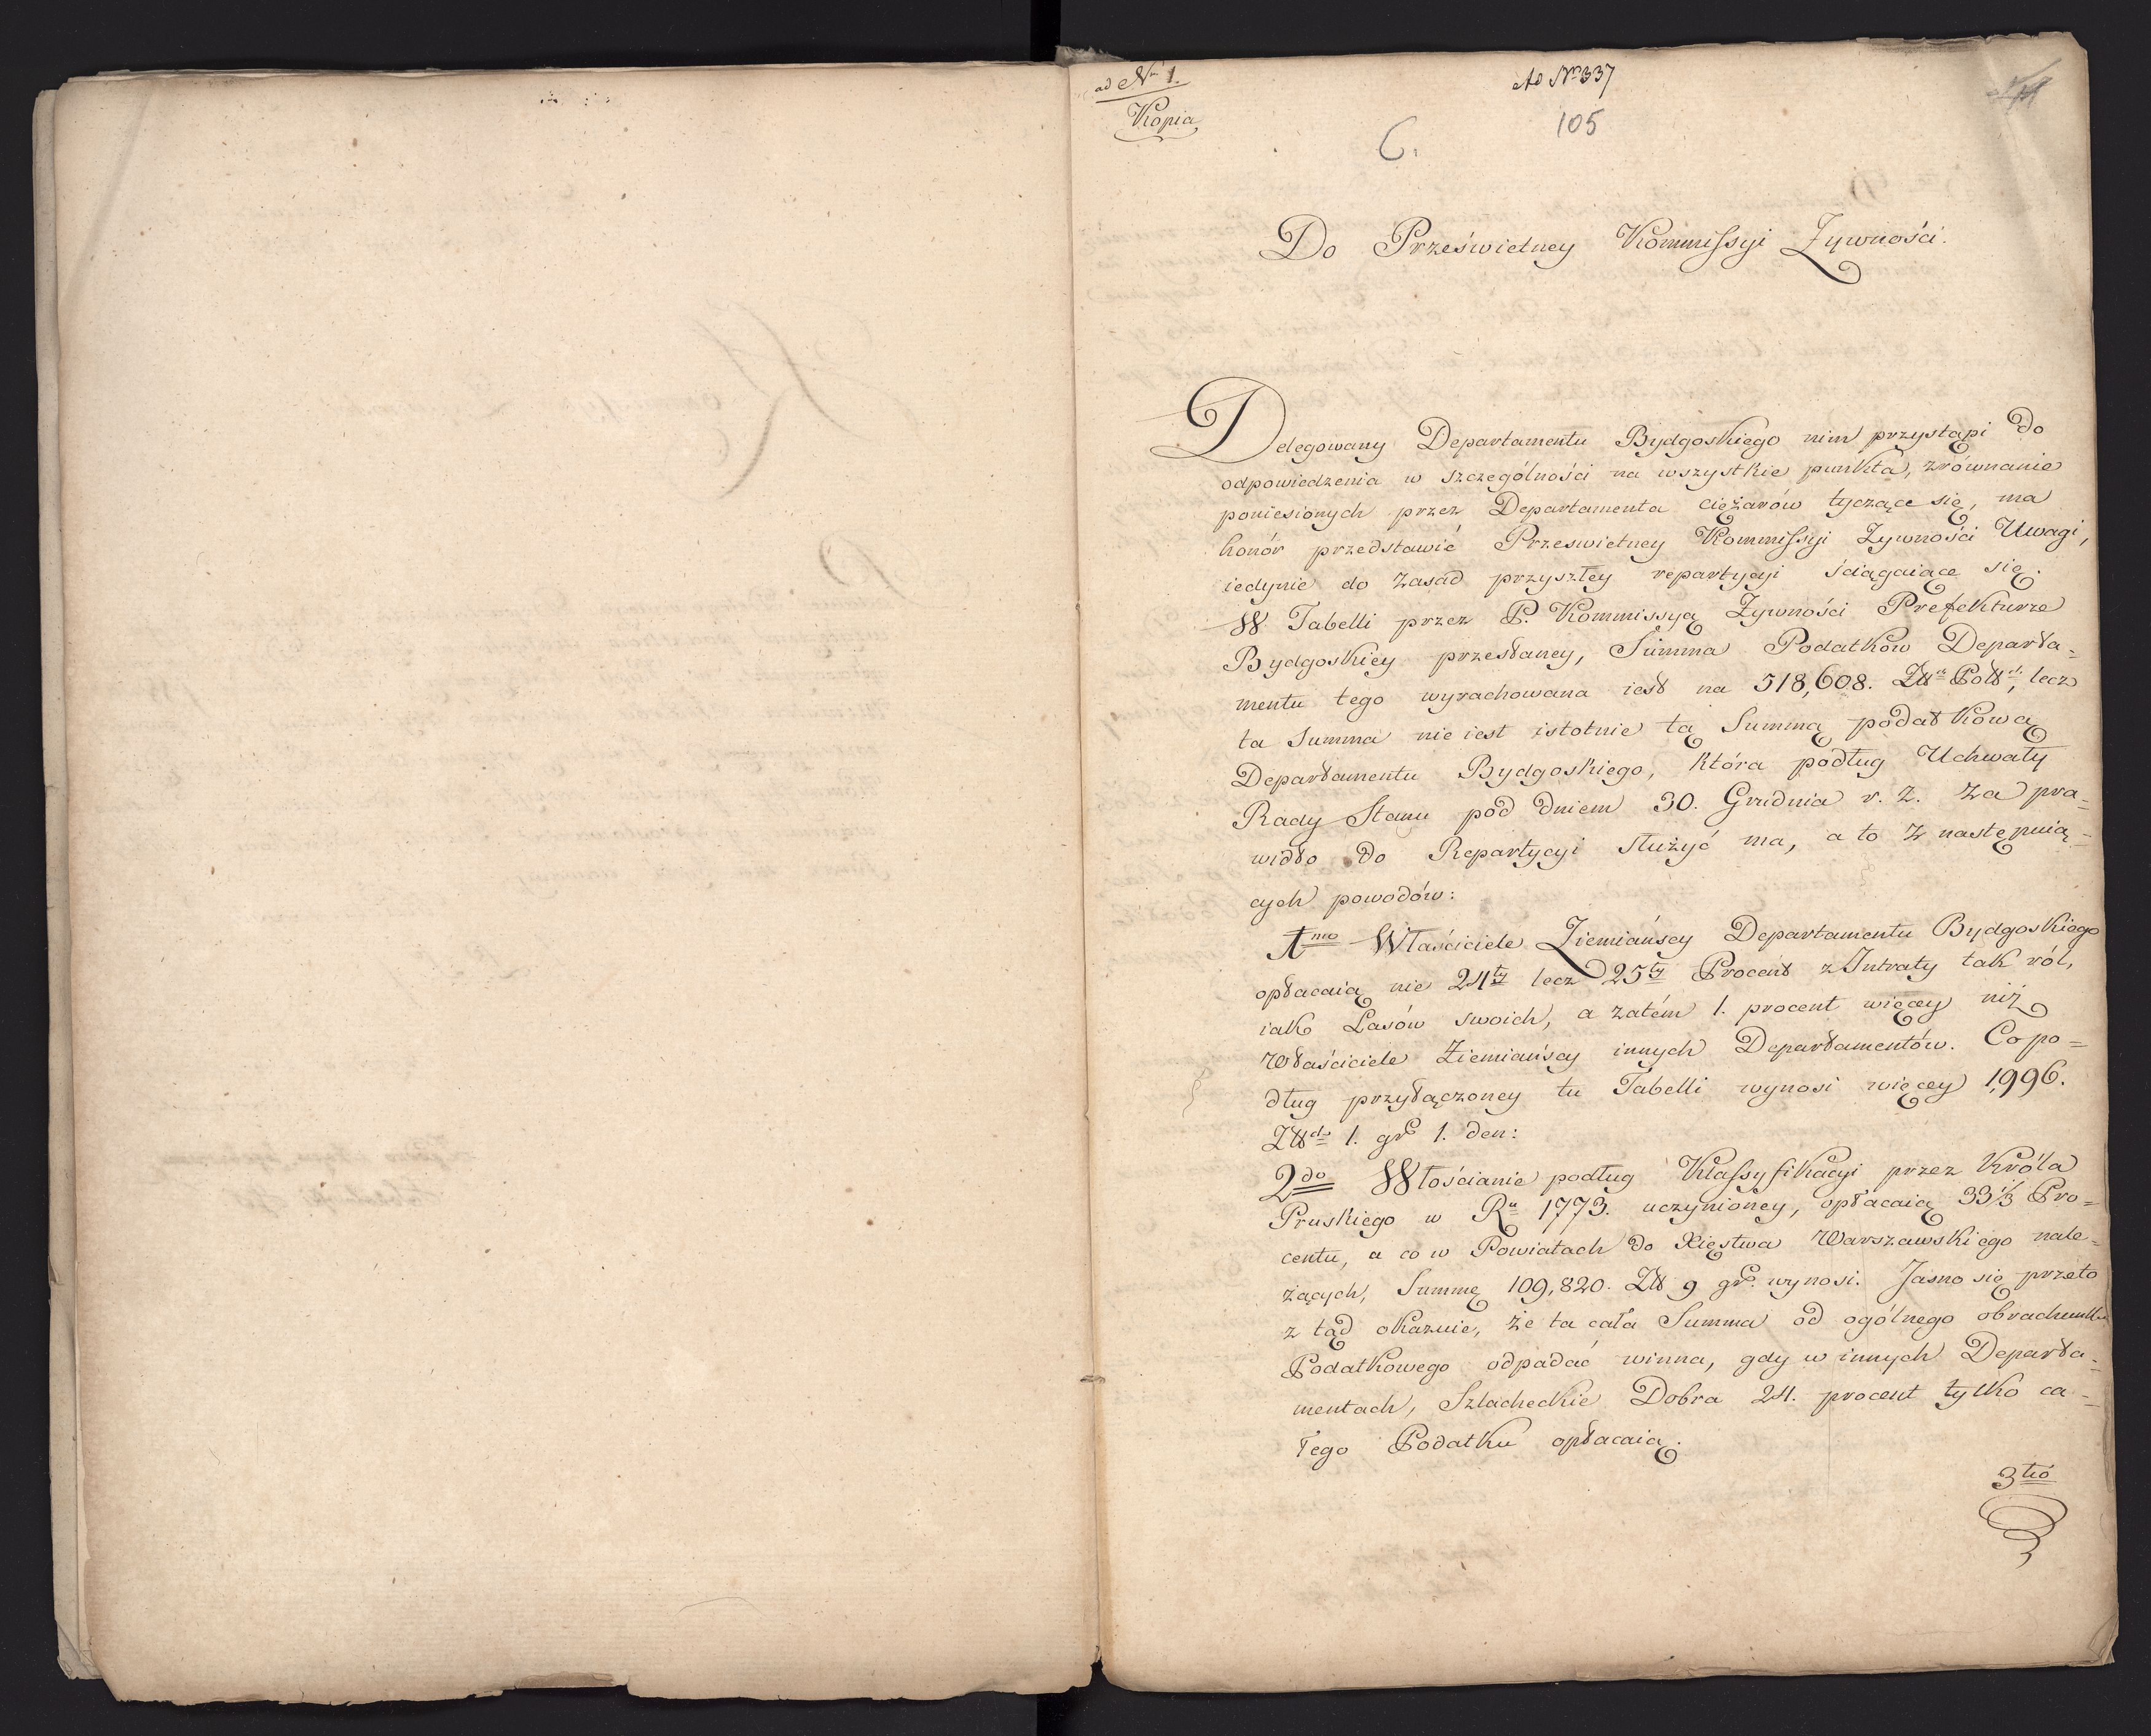 ad Nr 1.
Kopia
Ad No 337
105
C.
Do Prześwietney Kommissyi Żywności.
Delegowany Departamentu Bydgoskiego nim przystąpi do
odpowiedzenia w szczególności na wszystkie punkta, zrównanie
poniesionych przez Departamenta ciężarów tyczące się, ma
honór przedstawić Przeswietney Kommissyi Żywności Uwagi,
iedynie do zasad przyszłey repartycyi ściągaiące się.
W Tabelli przez P. Kommissyą Żywności Prefekturze
Bydgoskiey przesłaney, Summa Podatków Departa=
mentu tego wyrachowana iest na 518,608. Złt. Pol., lecz
ta Summa nie iest istotnie tą Summą podatkową
Departamentu Bydgoskiego, która podług Uchwały
Rady Stanu pod dniem 30. Grudnia r. z. za pra=
widło do Repartycyi służyć ma, a to z następuią=
cych powodów:
1mo Właściciele Ziemiańscy Departamentu Bydgoskiego
opłacaią nie 24ty lecz 25ty Procent z Intraty tak ról,
iak Lasów swoich, a zatém 1. procent więcey niż
Właściciele Ziemiańscy innych Departamentów. Co po=
dług przyłączoney tu Tabelli wynosi więcey 1,996.
Złt. 1. gr. 1. den:
2do Włościanie podług Klassyfikacyi przez Króla
Pruskiego w Ru 1773. uczynioney, opłacaią 33 1/3 Pro=
centu, a co w Powiatach do Xięstwa Warszawskiego nale=
żących, Summę 109,820. Zł 9 gr. wynosi. Jasno się przeto
z tąd okazuie, że ta cała Summa od ogólnego obrachunku
Podatkowego odpadać winna, gdy w innych Departa=
mentach, Szlacheckie Dobra 24. procent tylko ca=
łego Podatku opłacaią.
3tio